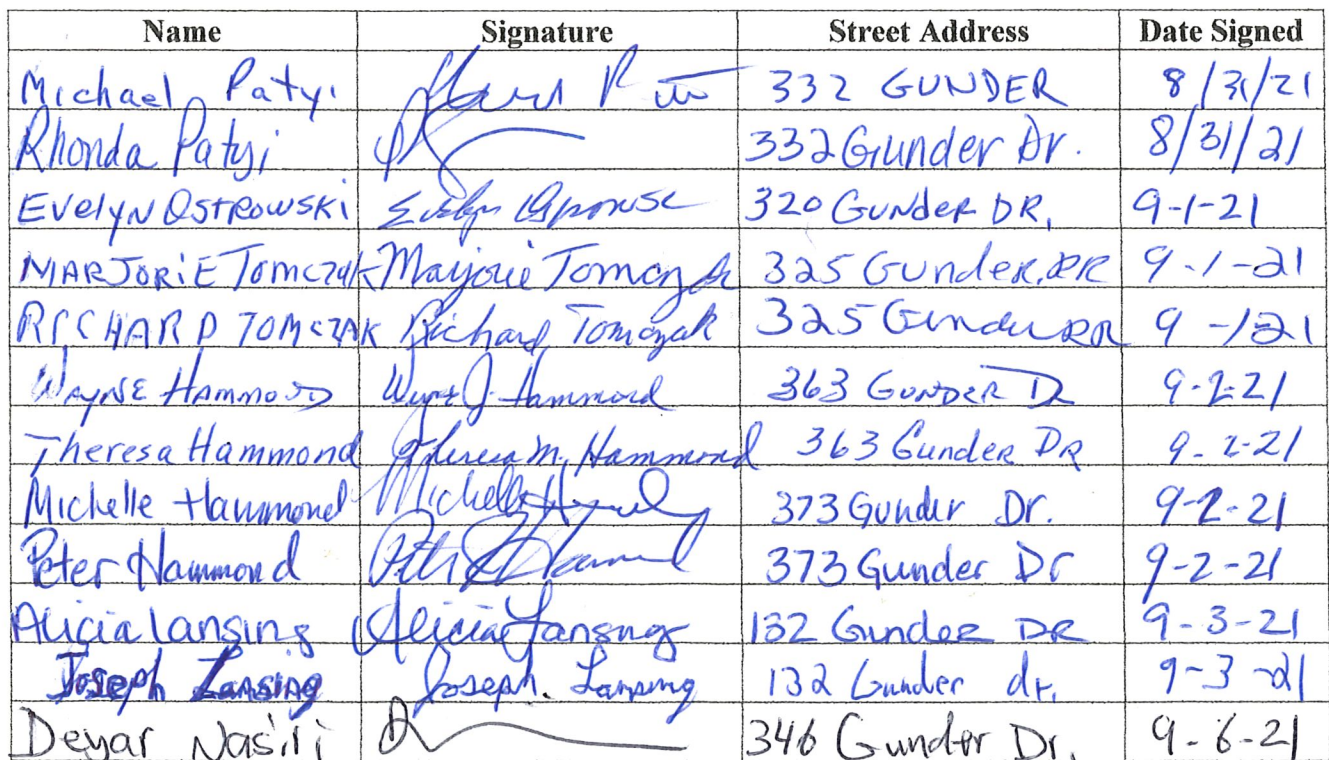 Name Signature Street Address Date Signed
Michael Patyi 332 GUNDER 8/31/21
Rhonda Patyi 332 Gunder Dr. 8/31/21
Evelyn Ostrowski Evelyn 320 Gunder DR. 9-1-21
MARJORiE Tomczak Marjorie Tomczak 325 Gunder.DR 9-1-21
RICHARD TOMCZAK Richard Tomczak 325 Gunder DR 9-1-21
WAYNE HAMMOND Wayne J. Hammond 363 GUNDER D 9-2-21
Theresa Hammond Theresa M. Hammond 363 Gunder DR 9-2-21
Michelle Hammond Michelle 373 Gunder Dr. 9-2-21
Peter Hammond 373 Gunder Dr 9-2-21
Alicia Lansing Alicia Lansing 132 Gunder DR 9-3-21
Joseph Lansing Joseph. Lansing 132 Gunder dr. 9-3-21
Deyar Nasiri 346 Gunder Dr. 9-6-21